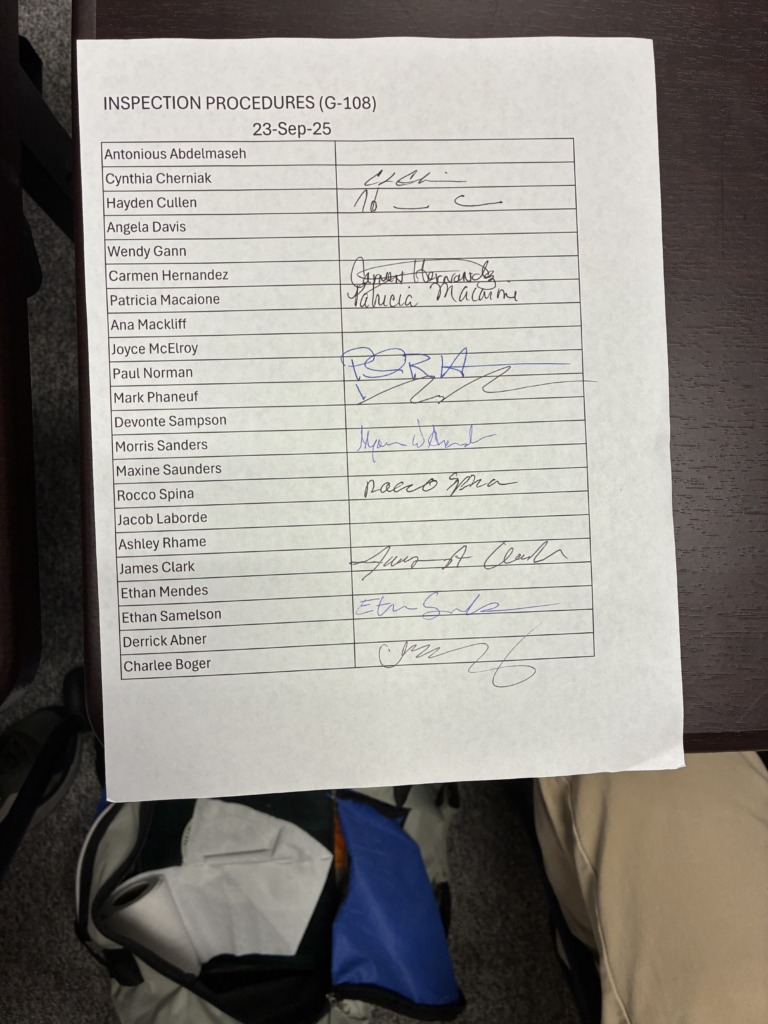 INSPECTION PROCEDURES (G-108)
23-Sep-25
Antonious Abdelmaseh
Cynthia Cherniak
Hayden Cullen
Angela Davis
Wendy Gann
Carmen Hernandez Carmen Hernandez
Patricia Macaione Patricia Macaione
Ana Mackliff
Joyce McElroy
Paul Norman
Mark Phaneuf
Devonte Sampson
Morris Sanders
Maxine Saunders
Rocco Spina Rocco Spina
Jacob Laborde
Ashley Rhame
James Clark James A Clark
Ethan Mendes
Ethan Samelson
Derrick Abner
Charlee Boger